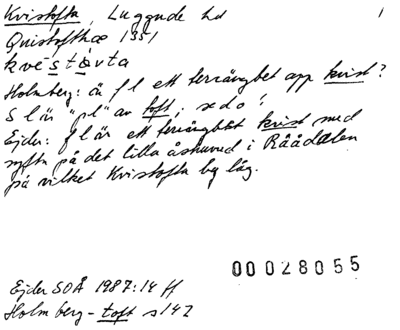 Kvistofta, Luggude hd 1
Quistofthæ 1351
kvéstå̀vta
Holmberg: är fl ett terrängbet app kvist?
Sl är "pl" av toft, se do!
Ejder: fl är ett terrängbet kvist med
syfta på det lilla åshuvud i Råådalen
på vilket Kvistofta by låg.
00028055
Ejder SOÅ 1987:14 ff
Holmberg - toft s 142